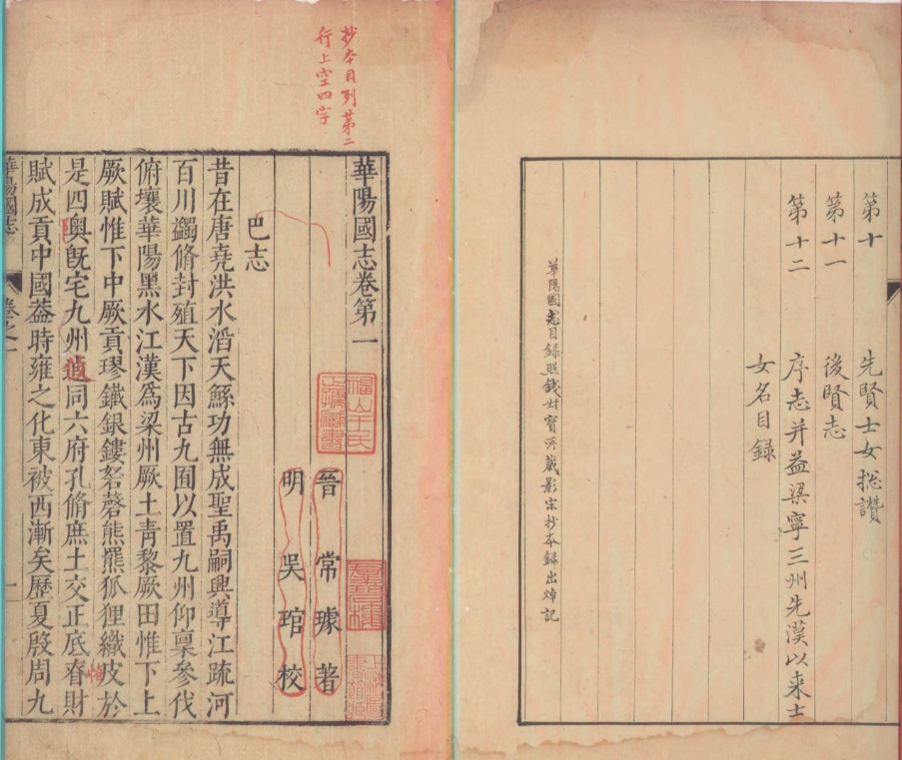 第十　先賢士女揔讚
第十一　後賢志
第十二　序志并益梁寧三州先漢以来士
女名目録
華陽國志目録照錢叔寶所藏影宋抄本録出焯記
抄本目列第二
行上空四字
華陽國志卷第一
晉　常　璩　著
明　吳　琯　校
福山王氏
巴志
昔在唐堯洪水滔天鯀功無成聖禹嗣興導江疏河
百川蠲脩封殖天下因古九囿以置九州仰稟參伐
俯壤華陽黑水江漢爲梁州厥土靑黎厥田惟下上
厥賦惟下中厥貢璆鐵銀鏤砮磬熊羆狐狸織皮於
是四奧旣宅九州逌同六府孔脩庶土交正底眘財
賦成貢中國葢時雍之化東被西漸矣歷夏殷周九
華陽國志
卷之一
一